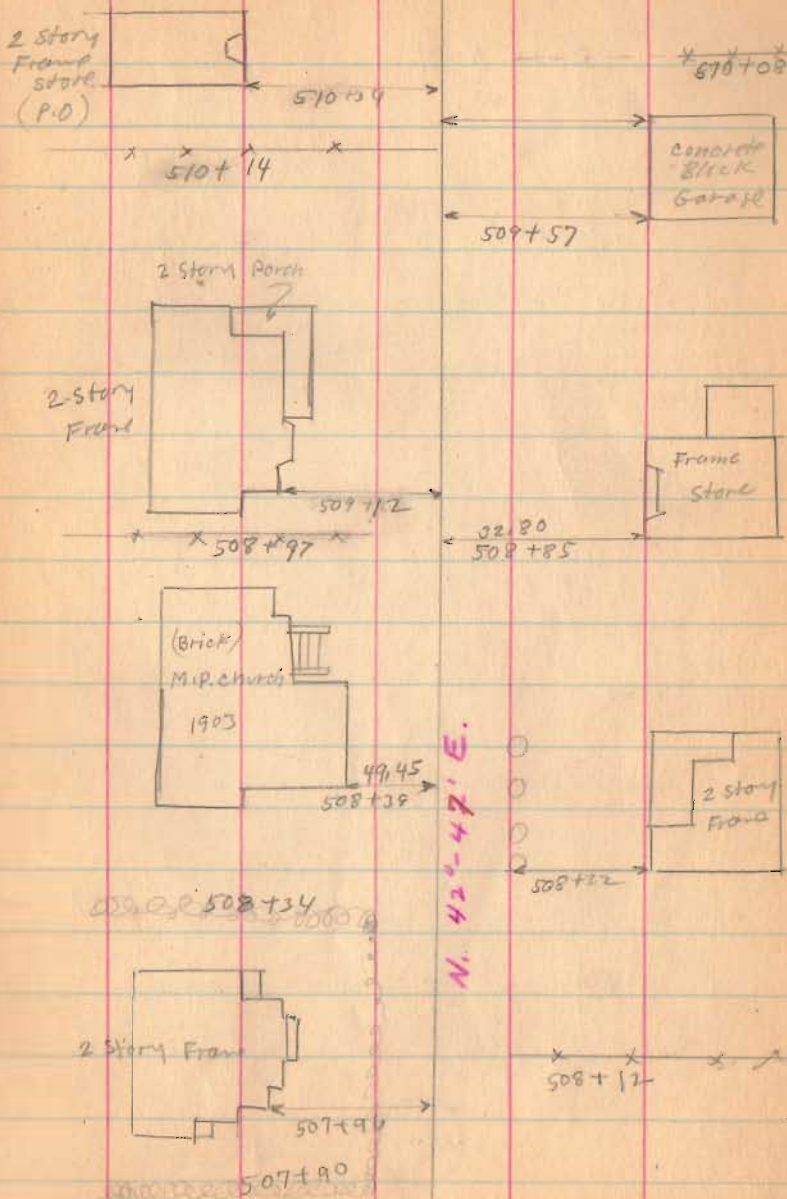 2 Story
Frame
Store
(P.O)
510+34
510+08
510+14
Concrete
Block
Garage
509+57
2 Story Porch
2-Story
Frame
Frame
Store
509+12
508+97
32.80
508+85
(Brick)
M.P. church
1903
49.45
508+38
N. 42°-47' E.
2 Story
Frame
508+22
508+34
2 Story Frame
508+12
507+96
507+90